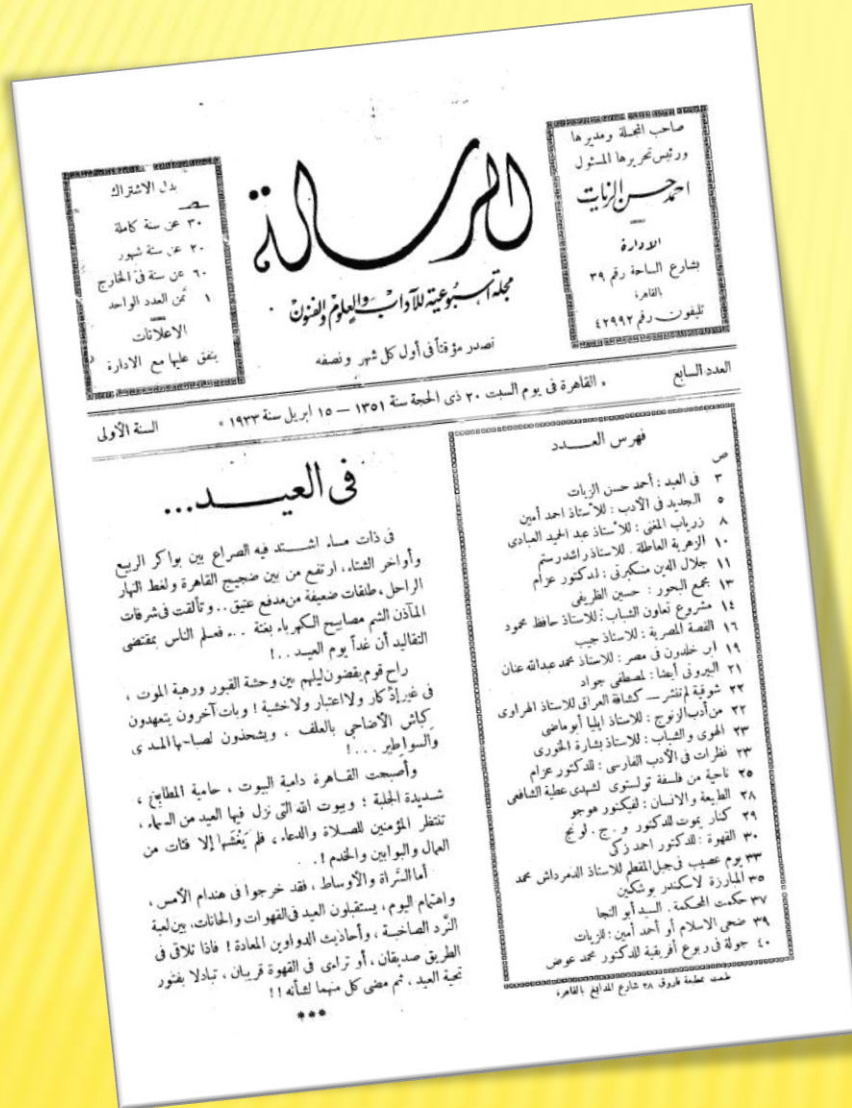 صاحب المجلة ومديرها
ورئيس تحريرها المسئول
احمد حسن الزيات
الادارة
بشارع الساحة رقم ٣٩
بالقاهرة
تليفون رقم ٤٢٩٩٢
الرسالة
مجلة اسبوعية للآداب والعلوم والفنون
تصدر مؤقتاً فى أول كل شهر ونصفه
بدل الاشتراك
٣٠ عن سنة كاملة
٢٠ عن ستة شهور
٦٠ عن سنة فى الخارج
١ ثمن العدد الواحد
الاعلانات
يتفق عليها مع الادارة
العدد السابع
« القاهرة فى يوم السبت ٢٠ ذى الحجة سنة ١٣٥١ — ١٥ ابريل سنة ١٩٣٣ »
السنة الأولى
فهرس العـــدد
ص
٣ فى العيد : أحمد حسن الزيات
٥ التجديد فى الأدب : للأستاذ احمد أمين
٨ زرياب المغنى : للأستاذ عبد الحميد العبادى
١٠ الزهرية العاطلة . للاستاذ راشد رستم
١١ جلال الدين منكبرتى : للدكتور عزام
١٣ بجمع البحور : حسين الظريفى
١٤ مشروع تعاون الشباب : للاستاذ حافظ محمود
١٦ القصة المصرية : للاستاذ جيب
١٩ ابن خلدون فى مصر : للاستاذ محمد عبدالله عنان
٢١ البيرونى أيضا : لمصطفى جواد
٢٢ شوقية لم تنشر — كشافة العراق للاستاذ الهراوى
٢٢ من أدب الزنوج : للاستاذ ايليا أبو ماضى
٢٣ الهوى والشباب : للاستاذ بشارة الخورى
٢٣ نظرات فى الأدب الفارسى : للدكتور عزام
٢٥ ناحية من فلسفة تولستوى لشهدى عطية الشافعى
٢٨ الطبيعة والانسان : لفيكتور هوجو
٢٩ كنار يموت للدكتور و . ج . لونج
٣٠ القهوة : للدكتور احمد زكى
٣٣ يوم عصيب فى جبل المقطم للاستاذ الدمرداش محمد
٣٥ المبارزة لاسكندر بوشكين
٣٧ حكمت المحكمة . السيد أبو النجا
٣٩ ضحى الاسلام أو أحمد أمين : للزيات
٤٠ جولة فى ربوع أفريقية للدكتور محمد عوض
طبعت بمطبعة فاروق ٢٨ شارع المدابغ بالقاهرة
فى العيـــــد...
فى ذات مساء اشـــتد فيه الصراع بين بواكر الربيع
وأواخر الشتاء، ارتفع من بين ضجيج القاهرة ولغط النهار
الراحل، طلقات ضعيفة من مدفع عتيق.. وتألقت فى شرفات
المآذن الشم مصابيح الكهرباء بغتة ... فعلم الناس بمقتضى
التقاليد أن غداً يوم العيد . . . !
راح قوم يقضون ليلهم بين وحشة القبور ورهبة الموت ،
فى غير إذكار ولا اعتبار ولا خشية ! وبات آخرون يتعهدون
كباش الأضاحى بالعلف ، ويشحذون لصباحها المدى
والسواطير . . . !
وأصبحت القــاهرة دامية البيوت ، حامية المطابخ ،
شــديدة الجلبة ؛ وبيوت الله التى نزل فيها العيد من السماء ،
تنتظر المؤمنين للصــلاة والدعاء، فلم يَغْشَها إلا فئات من
العمال والبوابين والخدم ! . .
أما السَّراة والأوساط ، فقد خرجوا فى هندام الأمس ،
واهتمام اليوم، يستقبلون العيد فى القهوات والحانات، بين لعبة
النَّرد الصاخبــة ، وأحاديث الدواوين المعادة ! فاذا تلاقى فى
الطريق صديقان ، أو تراءى فى القهوة قريبان ، تبادلا بفتور
تحية العيد ، ثم مضى كل منهما لشأنه !!
***